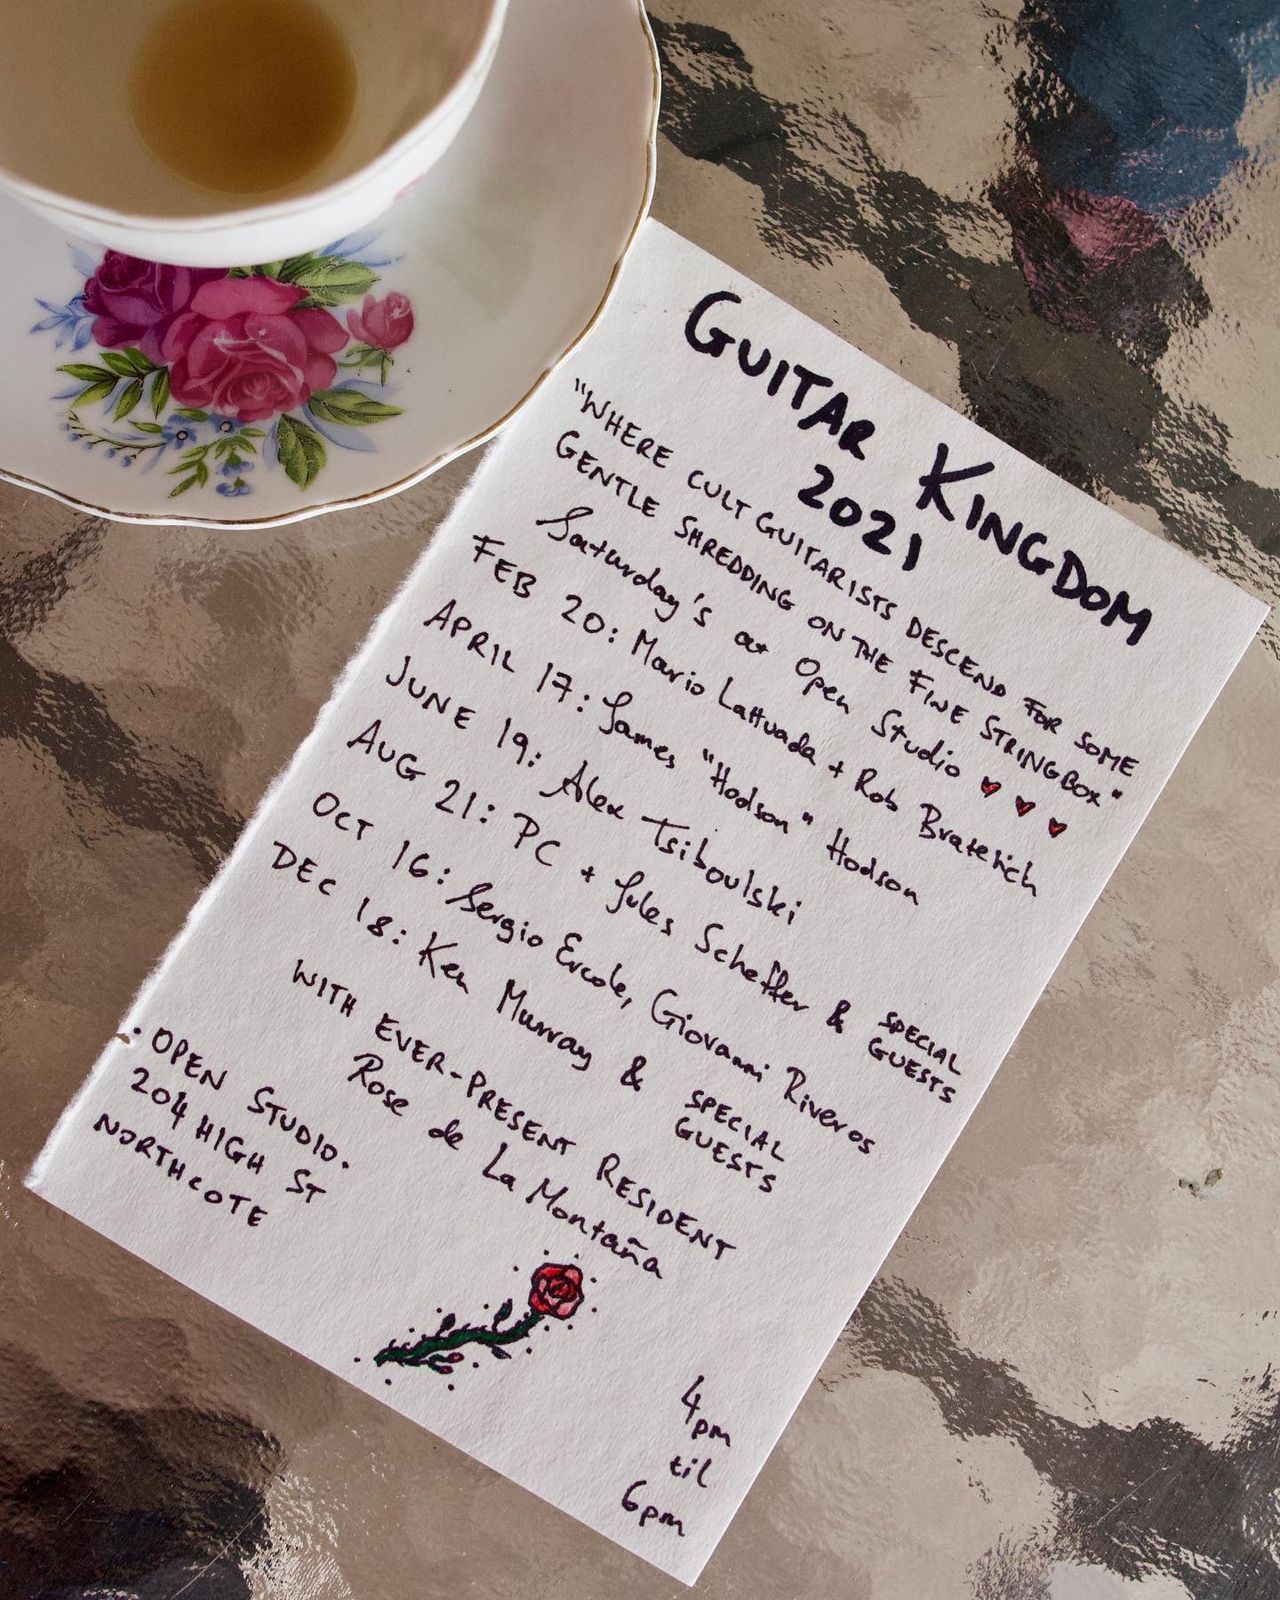 GUITAR KINGDOM
2021
"WHERE CULT GUITARISTS DESCEND FOR SOME
GENTLE SHREDDING ON THE FINE STRINGBOX"
Saturday's at Open Studio
FEB 20: Mario Lattuada + Rob Bratetich
APRIL 17: James "Hodson" Hodson
JUNE 19: Alex Tsiboulski
AUG 21: PC + Jules Scheffer & SPECIAL GUESTS
OCT 16: Sergio Ercole, Giovanni Riveros
DEC 18: Ken Murray & SPECIAL GUESTS
WITH EVER-PRESENT RESIDENT
Rose de La Montaña
• OPEN STUDIO •
204 HIGH ST
NORTHCOTE
4pm
til
6pm